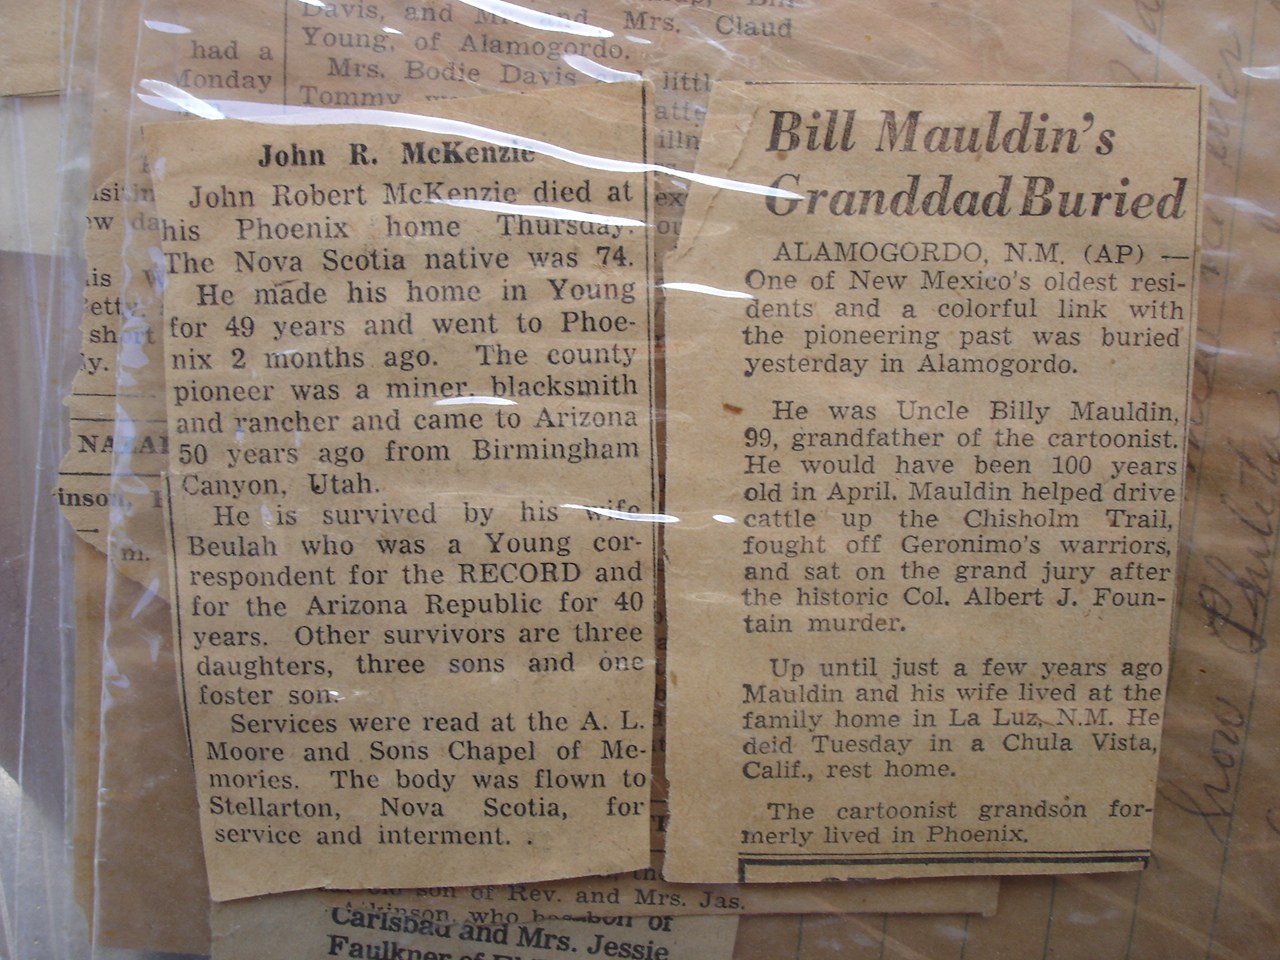 Davis, and Mr. and Mrs. Claud
Young, of Alamogordo.
Mrs. Bodie Davis and littl
Tommy
had a
Monday
John R. McKenzie
John Robert McKenzie died at
his Phoenix home Thursday.
The Nova Scotia native was 74.
He made his home in Young
for 49 years and went to Phoe-
nix 2 months ago. The county
pioneer was a miner, blacksmith
and rancher and came to Arizona
50 years ago from Birmingham
Canyon, Utah.
He is survived by his wife
Beulah who was a Young cor-
respondent for the RECORD and
for the Arizona Republic for 40
years. Other survivors are three
daughters, three sons and one
foster son.
Services were read at the A. L.
Moore and Sons Chapel of Me-
mories. The body was flown to
Stellarton, Nova Scotia, for
service and interment. .
Bill Mauldin's
Granddad Buried
ALAMOGORDO, N.M. (AP) —
One of New Mexico's oldest resi-
dents and a colorful link with
the pioneering past was buried
yesterday in Alamogordo.
He was Uncle Billy Mauldin,
99, grandfather of the cartoonist.
He would have been 100 years
old in April. Mauldin helped drive
cattle up the Chisholm Trail,
fought off Geronimo's warriors,
and sat on the grand jury after
the historic Col. Albert J. Foun-
tain murder.
Up until just a few years ago
Mauldin and his wife lived at the
family home in La Luz, N.M. He
deid Tuesday in a Chula Vista,
Calif., rest home.
The cartoonist grandson for-
merly lived in Phoenix.
son of Rev. and Mrs. Jas.
who
Carlsbad and Mrs. Jessie
Faulkner of